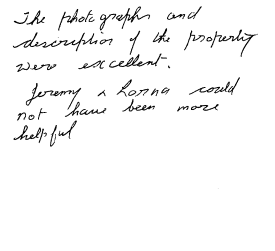 The photographs and
description of the property
were excellent.
Jeremy & Lorna could
not have been more
helpful